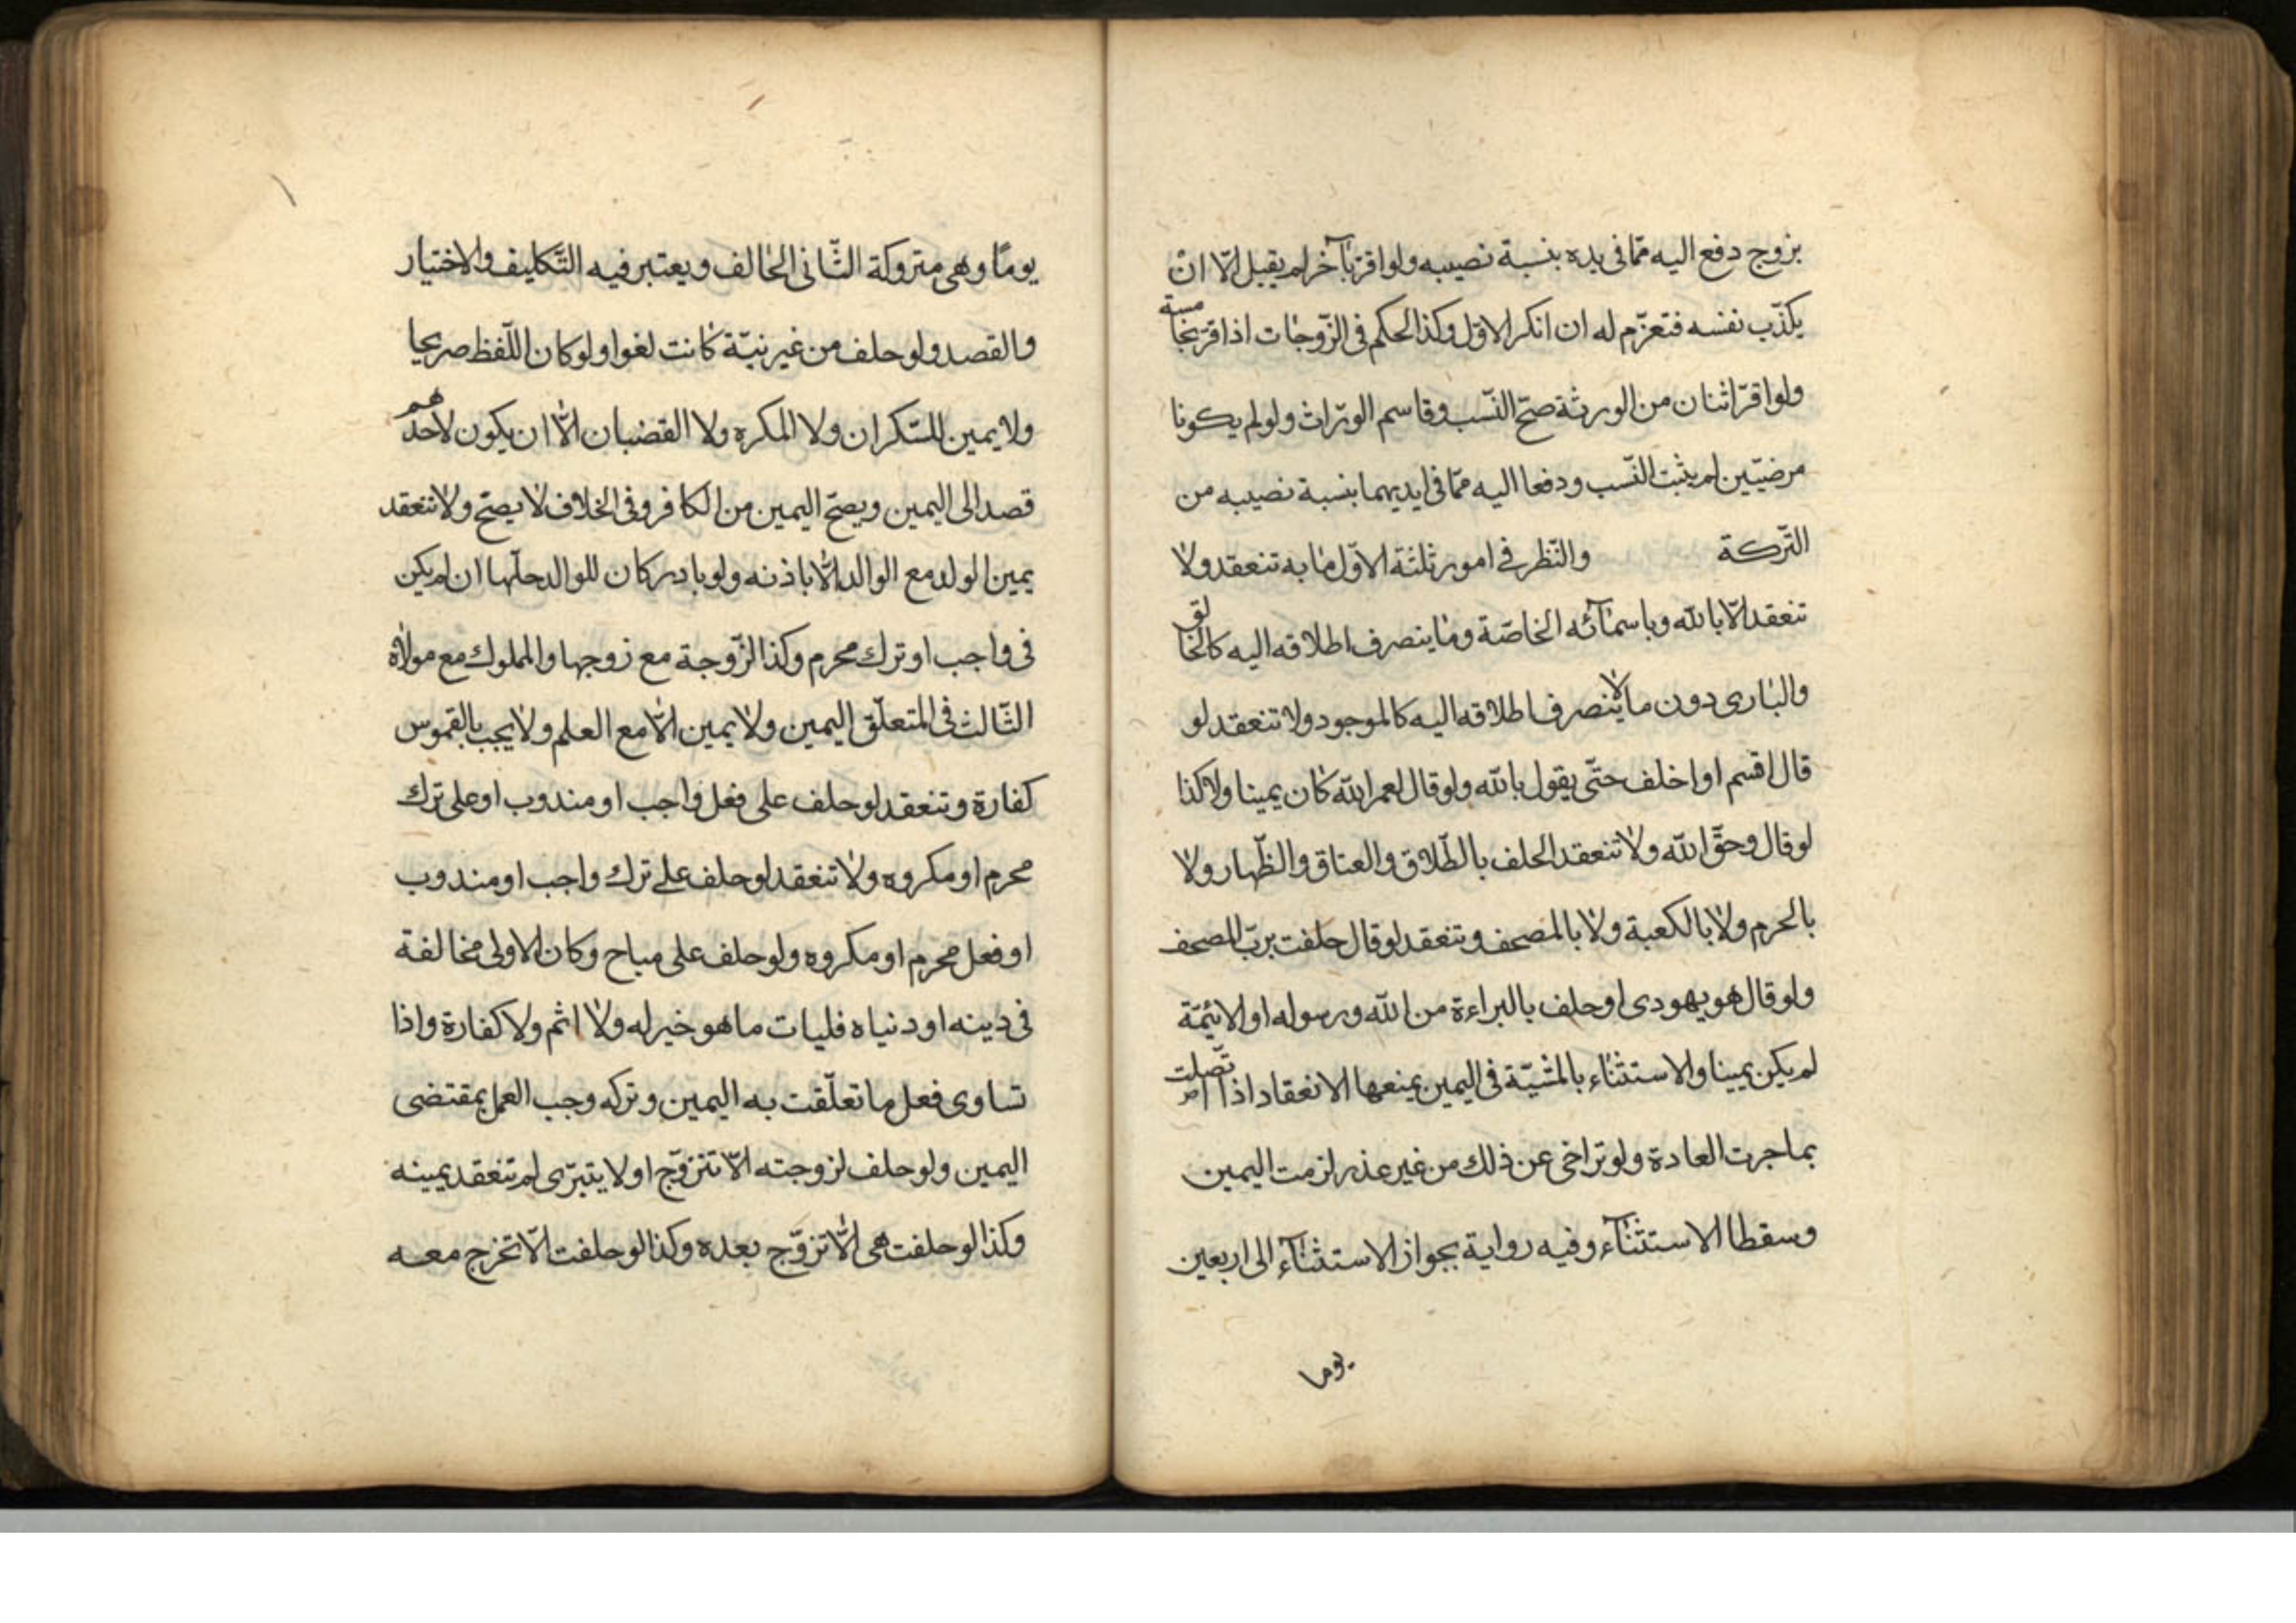 بزوج دفع اليه ممّا فى يده بنسبة نصيبه ولو اقرّ بآخر لم يقبل الّا ان
يكذّب نفسه فتغرّم له ان انكر الاوّل وكذا الحكم فى الزّوجات اذا اقرّ بخامسة
ولو اقرّ اثنان من الورثة صحّ النّسب وقاسم الورّاث ولو لم يكونا
مرضيّين لم يثبت النّسب ودفعا اليه ممّا فى ايديهما بنسبة نصيبه من
التّركة والنّظر فى امور ثلثة الاوّل ما به تنعقد ولا
تنعقد الّا بالله وباسمآئه الخاصّة وما ينصرف اطلاقه اليه كالخالق
والبارى دون ما لا ينصرف اطلاقه اليه كالموجود ولا تنعقد لو
قال اقسم او اخلف حتّى يقول بالله ولو قال لعمر الله كان يمينا ولا كذا
لو قال وحقّ الله ولا تنعقد الحلف بالطّلاق والعتاق والظّهار ولا
بالحرم ولا بالكعبة ولا بالمصحف وتنعقد لو قال حلفت بربّ المصحف
ولو قال هو يهودى او حلف بالبراءة من الله ورسوله او الائمّة
لم يكن يمينا والاستثناء بالمشيّة فى اليمين يمنعها الانعقاد اذا اتّصلت
بما جرت العادة ولو تراخى عن ذلك من غير عذر لزمت اليمين
وسقطا الاستثنآء وفيه رواية بجواز الاستثنآء الى اربعين
يوما
يومًا وهى متروكة الثّانى الحالف ويعتبر فيه التّكليف والاختيار
والقصد ولو حلف من غير نيّة كانت لغوا ولو كان اللّفظ صريحا
ولا يمين للسّكران ولا المكره ولا القضبان الّا ان يكون لاحدهم
قصد الى اليمين ويصحّ اليمين من الكافر وفى الخلاف لا يصحّ ولا تنعقد
يمين الولد مع الوالد الّا باذنه ولو بادر كان للوالد حلّها ان لم يكن
فى واجب او ترك محرم وكذا الزّوجة مع زوجها والمملوك مع مولاه
الثّالث فى المتعلّق اليمين ولا يمين الّا مع العلم ولا يجب بالقموس
كفارة وتنعقد لو حلف على فعل واجب او مندوب او على ترك
محرم او مكروه ولا تنعقد لو حلف على ترك واجب او مندوب
او فعل محرم او مكروه ولو حلف على مباح وكان الاولى مخالفة
فى دينه او دنياه فليات ما هو خير له ولا اثم ولا كفارة واذا
تساوى فعل ما تعلّقت به اليمين وتركه وجب العمل بمقتضى
اليمين ولو حلف لزوجته الّا تتزوّج او لا يتبرّى لم تنعقد يمينه
وكذا لو حلفت هى الّا تزوّج بعده وكذا لو حلفت الّا تخرج معه